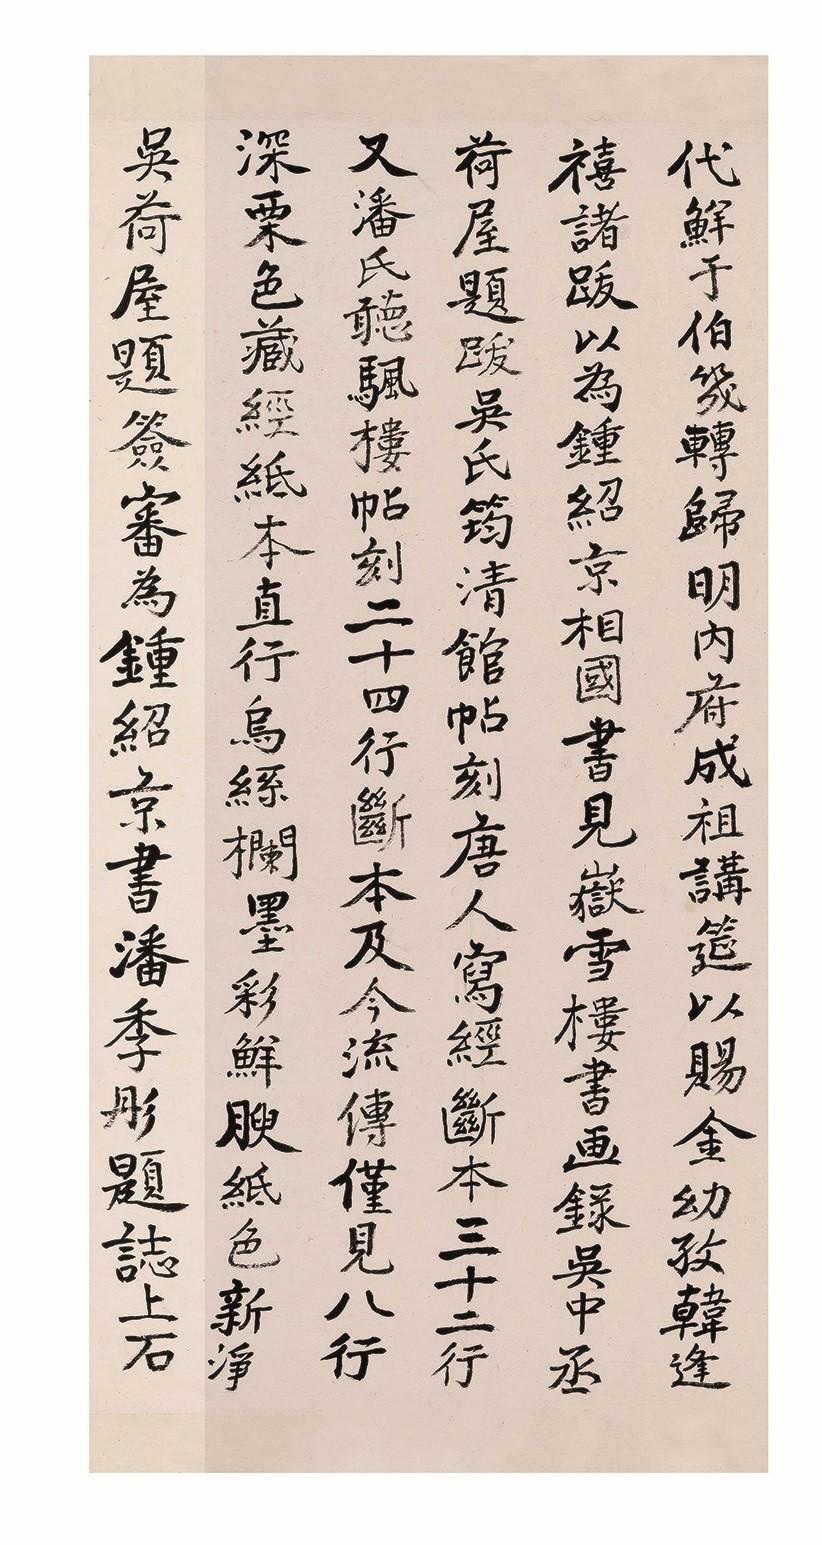 代鮮于伯笅轉歸明內府成祖講筵以賜金幼孜韓逢
禧諸跋以為鍾紹京相國書見嶽雪樓書画錄吳中丞
荷屋題跋吳氏筠清館帖刻唐人寫經斷本三十二行
又潘氏聽颿樓帖刻二十四行斷本及今流傳僅見八行
深栗色藏經紙本直行烏絲欄墨彩鮮腴紙色新淨
吳荷屋題簽審為鍾紹京書潘季彤題誌上石